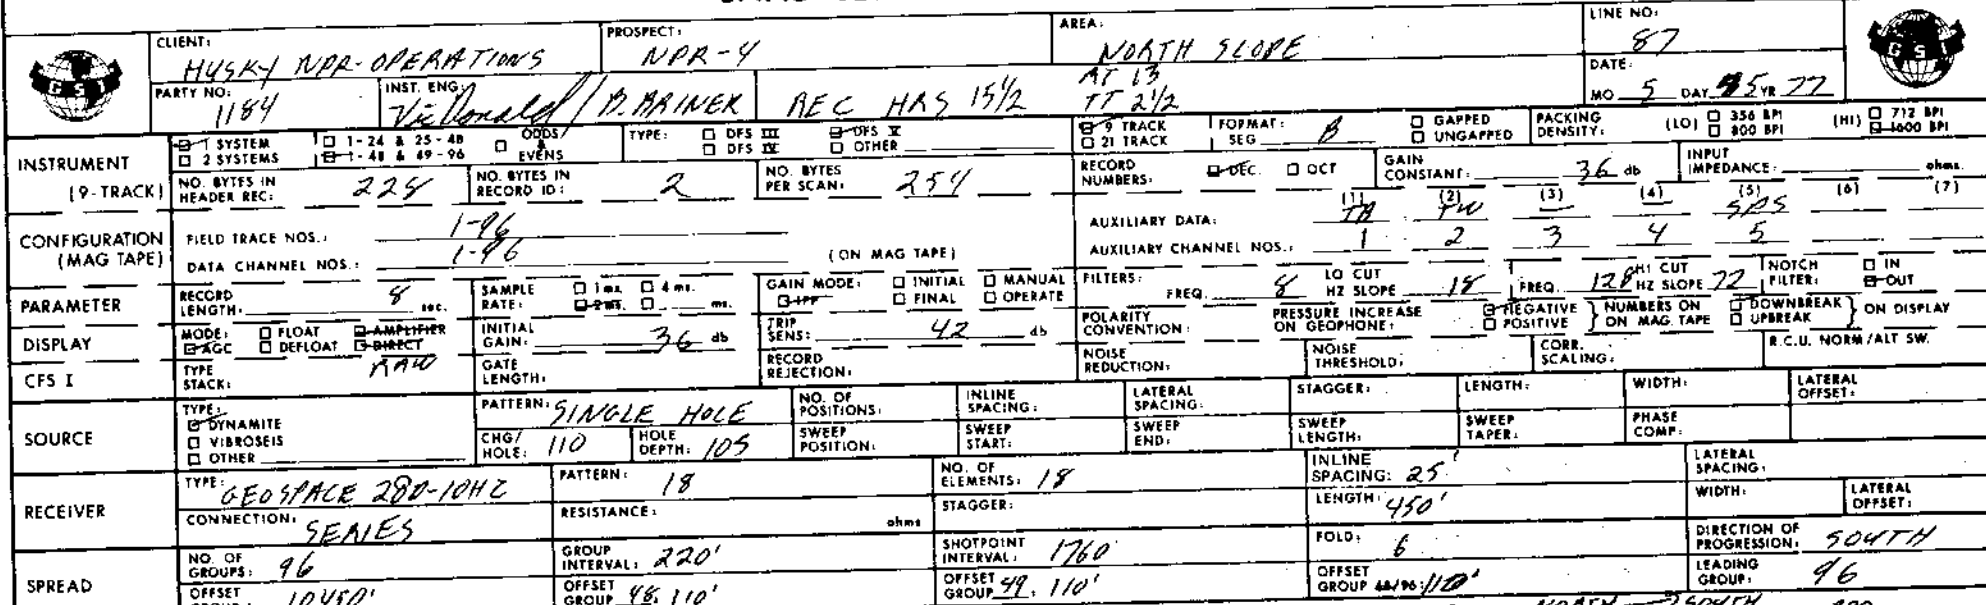 CLIENT: HUSKY NPR-OPERATIONS PROSPECT: NPR-4 AREA: NORTH SLOPE LINE NO: 87
GSI
PARTY NO: 1184 INST. ENG. Vic Donald / B. BRINER REC HRS 15 1/2 AT 13 TT 2 1/2 DATE: MO 5 DAY 5 YR 77
GSI
INSTRUMENT (9-TRACK) 1 SYSTEM 2 SYSTEMS 1-24 & 25-48 1-48 & 49-96 ODDS/ & EVENS TYPE: DFS III DFS IV DFS V OTHER 9 TRACK 21 TRACK FORMAT: SEG B GAPPED UNGAPPED PACKING DENSITY: (LO) 356 BPI 800 BPI (HI) 712 BPI 1600 BPI
NO. BYTES IN HEADER REC: 228 NO. BYTES IN RECORD ID: 2 NO. BYTES PER SCAN: 254 RECORD NUMBERS: DEC. OCT GAIN CONSTANT: 36 db INPUT IMPEDANCE: ohms.
CONFIGURATION (MAG TAPE) FIELD TRACE NOS.: 1-96
DATA CHANNEL NOS.: 1-96 (ON MAG TAPE)
(1) (2) (3) (4) (5) (6) (7)
AUXILIARY DATA: TB TW — — SPS
AUXILIARY CHANNEL NOS.: 1 2 3 4 5
PARAMETER RECORD LENGTH: 8 sec. SAMPLE RATE: 1 ms. 4 ms. 2 ms. ms. GAIN MODE: INITIAL MANUAL IFP FINAL OPERATE FILTERS: FREQ. 8 LO CUT HZ SLOPE 18 FREQ. 128 HI CUT HZ SLOPE 72 NOTCH FILTER: IN OUT
DISPLAY MODE: FLOAT AMPLIFIER AGC DEFLOAT DIRECT INITIAL GAIN: 36 db TRIP SENS: 42 db POLARITY CONVENTION: PRESSURE INCREASE ON GEOPHONE: NEGATIVE POSITIVE } NUMBERS ON ON MAG. TAPE DOWNBREAK UPBREAK } ON DISPLAY
CFS I TYPE STACK: RAW GATE LENGTH: RECORD REJECTION: NOISE REDUCTION: NOISE THRESHOLD: CORR. SCALING: R.C.U. NORM/ALT SW.
SOURCE TYPE: DYNAMITE VIBROSEIS OTHER PATTERN: SINGLE HOLE NO. OF POSITIONS: INLINE SPACING: LATERAL SPACING: STAGGER: LENGTH: WIDTH: LATERAL OFFSET:
CHG/HOLE: 110 HOLE DEPTH: 105 SWEEP POSITION: SWEEP START: SWEEP END: SWEEP LENGTH: SWEEP TAPER: PHASE COMP:
RECEIVER TYPE: GEOSPACE 280-10HZ PATTERN: 18 NO. OF ELEMENTS: 18 INLINE SPACING: 25' LATERAL SPACING:
CONNECTION: SERIES RESISTANCE: ohms STAGGER: LENGTH: 450' WIDTH: LATERAL OFFSET:
SPREAD NO. OF GROUPS: 96 GROUP INTERVAL: 220' SHOTPOINT INTERVAL: 1760' FOLD: 6 DIRECTION OF PROGRESSION: SOUTH
OFFSET 10450' OFFSET GROUP 48: 110' OFFSET GROUP 49: 110' OFFSET GROUP 48/96: 110' LEADING GROUP: 96
NORTH SOUTH